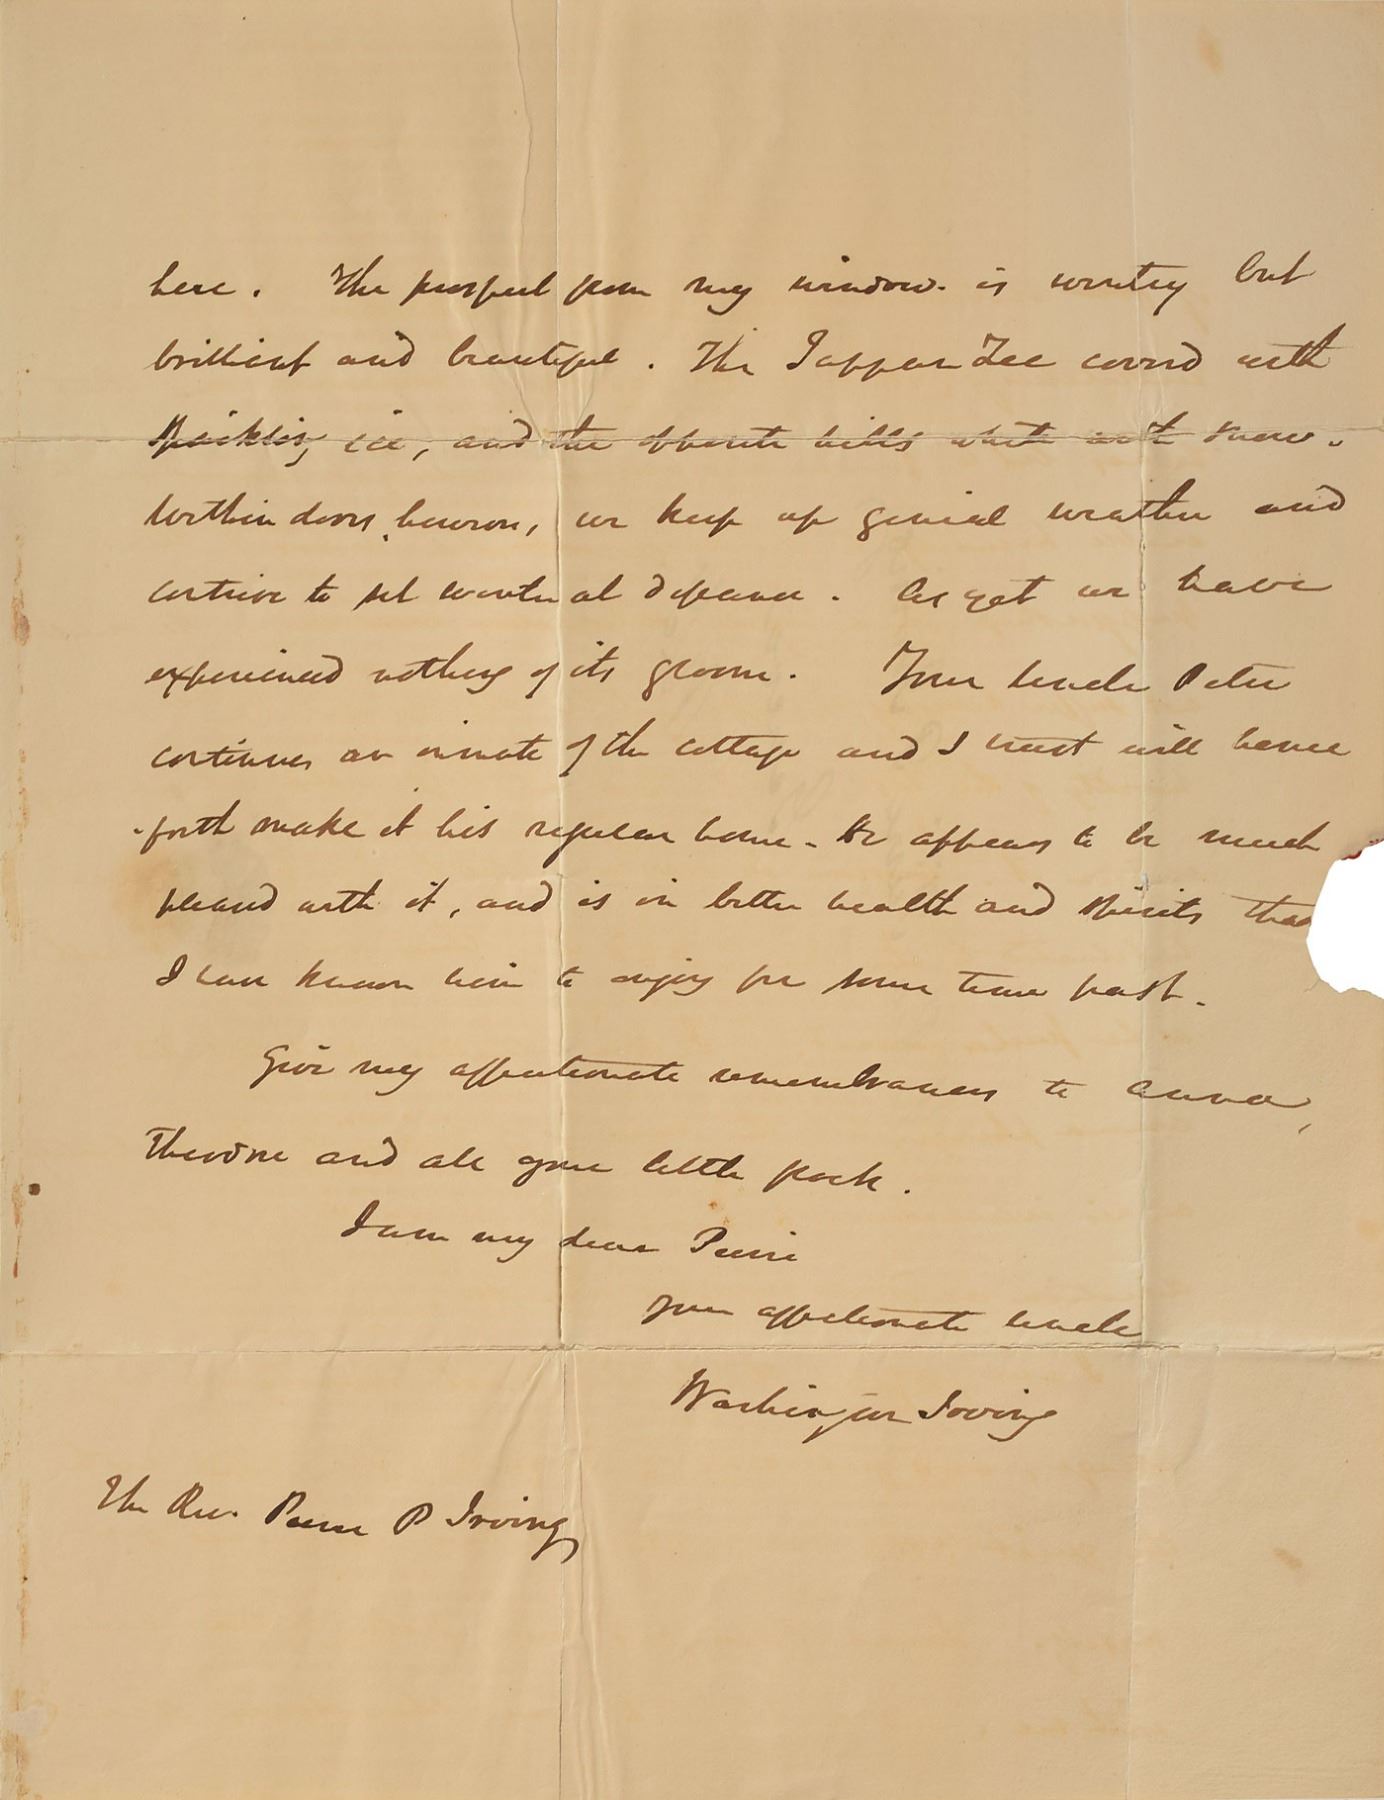 here. The prospect from my window is wintry but
brilliant and beautiful. The Tappan Zee coverd with
sparkling ice, and the opposite hills white with snow.
Within doors, however, we keep up genial weather and
contrive to set winter at defiance. As yet we have
experienced nothing of its gloom. Your Uncle Peter
continues an inmate of the cottage and I trust will hence
-forth make it his regular home. He appears to be much
pleased with it, and is in better health and spirits than
I have known him to enjoy for some time past.
Give my affectionate remembrances to Anna,
Theodore and all your little flock.
I am my dear Pierre
Your affectionate Uncle
Washington Irving
The Rev. Pierre P Irving